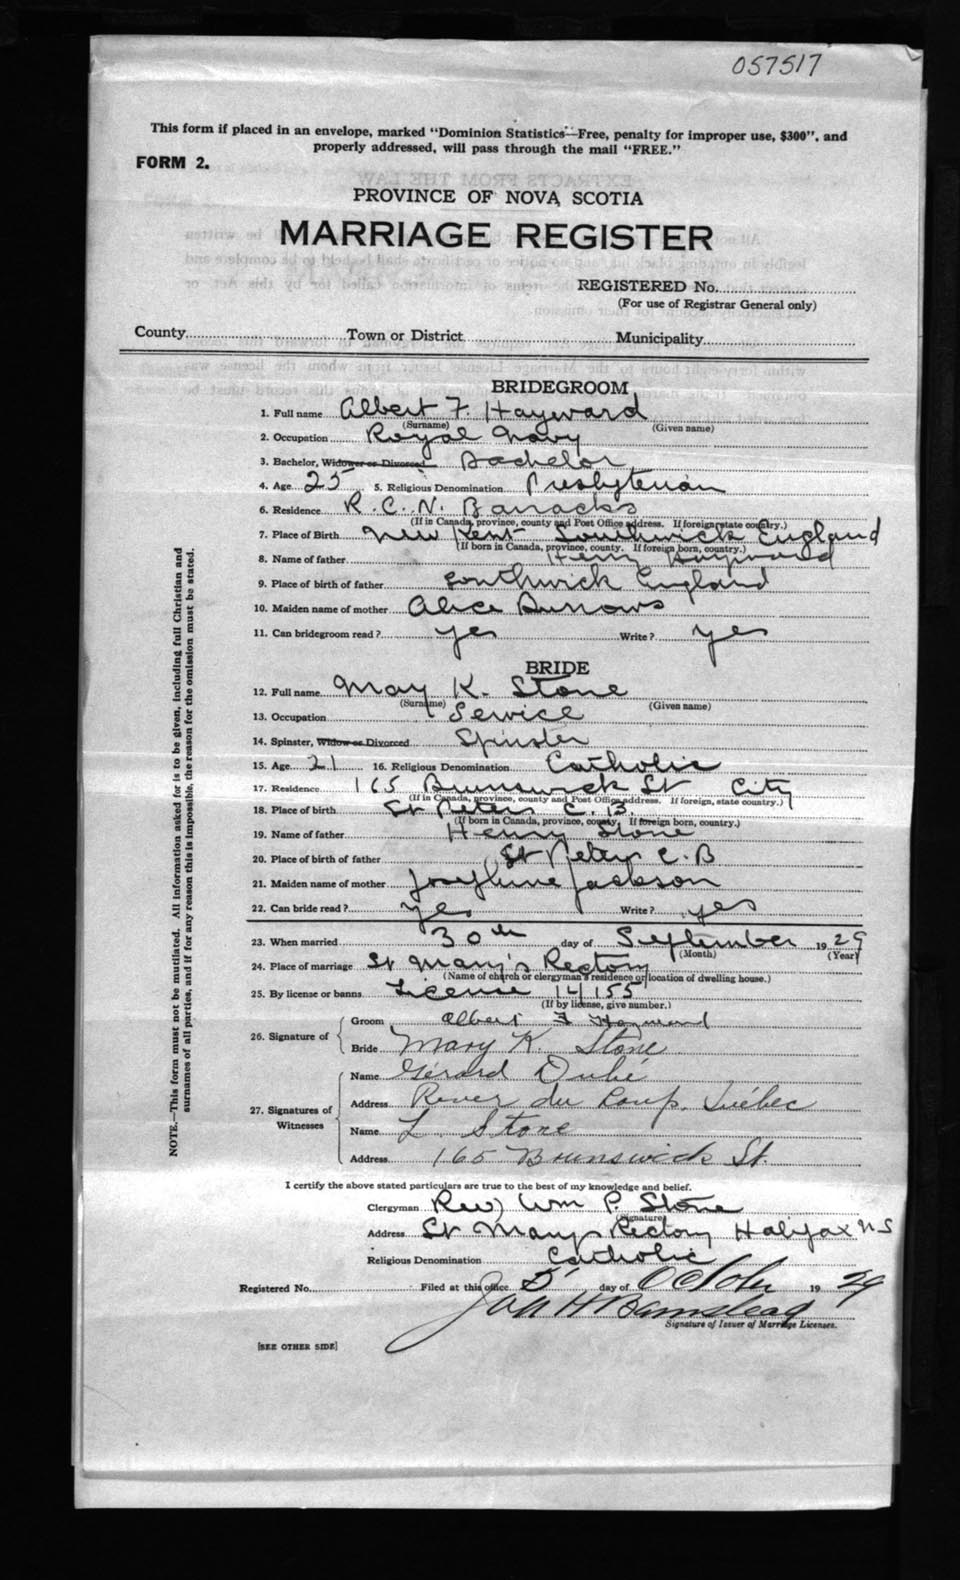 057517
This form if placed in an envelope, marked "Dominion Statistics—Free, penalty for improper use, $300", and
properly addressed, will pass through the mail "FREE."
FORM 2.
PROVINCE OF NOVA SCOTIA
MARRIAGE REGISTER
REGISTERED No.
(For use of Registrar General only)
County Town or District Municipality
BRIDEGROOM
1. Full name Albert F. Hayward
(Surname) (Given name)
2. Occupation Royal Navy
3. Bachelor, Widower or Divorced Bachelor
4. Age 25 5. Religious Denomination Presbyterian
6. Residence R.C.N. Barracks
(If in Canada, province, county and Post Office address. If foreign, state country.)
7. Place of Birth New Kent Southwick England
(If born in Canada, province, county. If foreign born, country.)
8. Name of father Henry Hayward
9. Place of birth of father Southwick England
10. Maiden name of mother Alice Burrows
11. Can bridegroom read? yes Write? yes
BRIDE
12. Full name May K. Stone
(Surname) (Given name)
13. Occupation Service
14. Spinster, Widow or Divorced Spinster
15. Age 21 16. Religious Denomination Catholic
17. Residence 165 Brunswick St City
(If in Canada, province, county and Post Office address. If foreign, state country.)
18. Place of birth St Peters C.B.
(If born in Canada, province, county. If foreign born, country.)
19. Name of father Henry Stone
20. Place of birth of father St Peters C.B
21. Maiden name of mother Josephine Jackson
22. Can bride read? yes Write? yes
23. When married 30th day of September 1929
(Month) (Year)
24. Place of marriage St Mary's Rectory
(Name of church or clergyman's residence or location of dwelling house.)
25. By license or banns License 14155
(If by license, give number.)
26. Signature of
Groom Albert F Hayward
Bride Mary K. Stone
27. Signatures of Witnesses
Name Gérard Dubé
Address River du Loup, Québec
Name L Stone
Address 165 Brunswick St.
I certify the above stated particulars are true to the best of my knowledge and belief.
Clergyman Rev) Wm P. Stone
(Signature)
Address St Marys Rectory Halifax N S
Religious Denomination Catholic
Registered No. Filed at this office 5 day of October 1929
Barnstead
Signature of Issuer of Marriage Licenses.
[SEE OTHER SIDE]
NOTE.—This form must not be mutilated. All information asked for is to be given, including full Christian and
surnames of all parties, and if for any reason this is impossible, the reason for the omission must be stated.